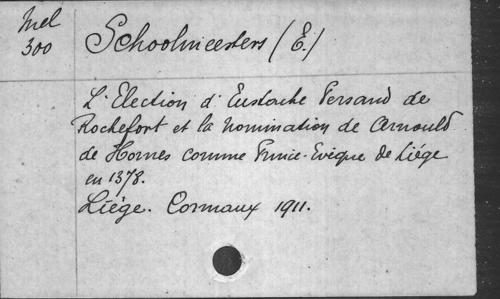 Mel
300
Schoolmeesters (E.)
L'Election d'Eustache Persand de
Rochefort et la nomination de Arnould
de Hornes comme Prince-Evêque de Liége
en 1378.
Liége. Cormaux 1911.